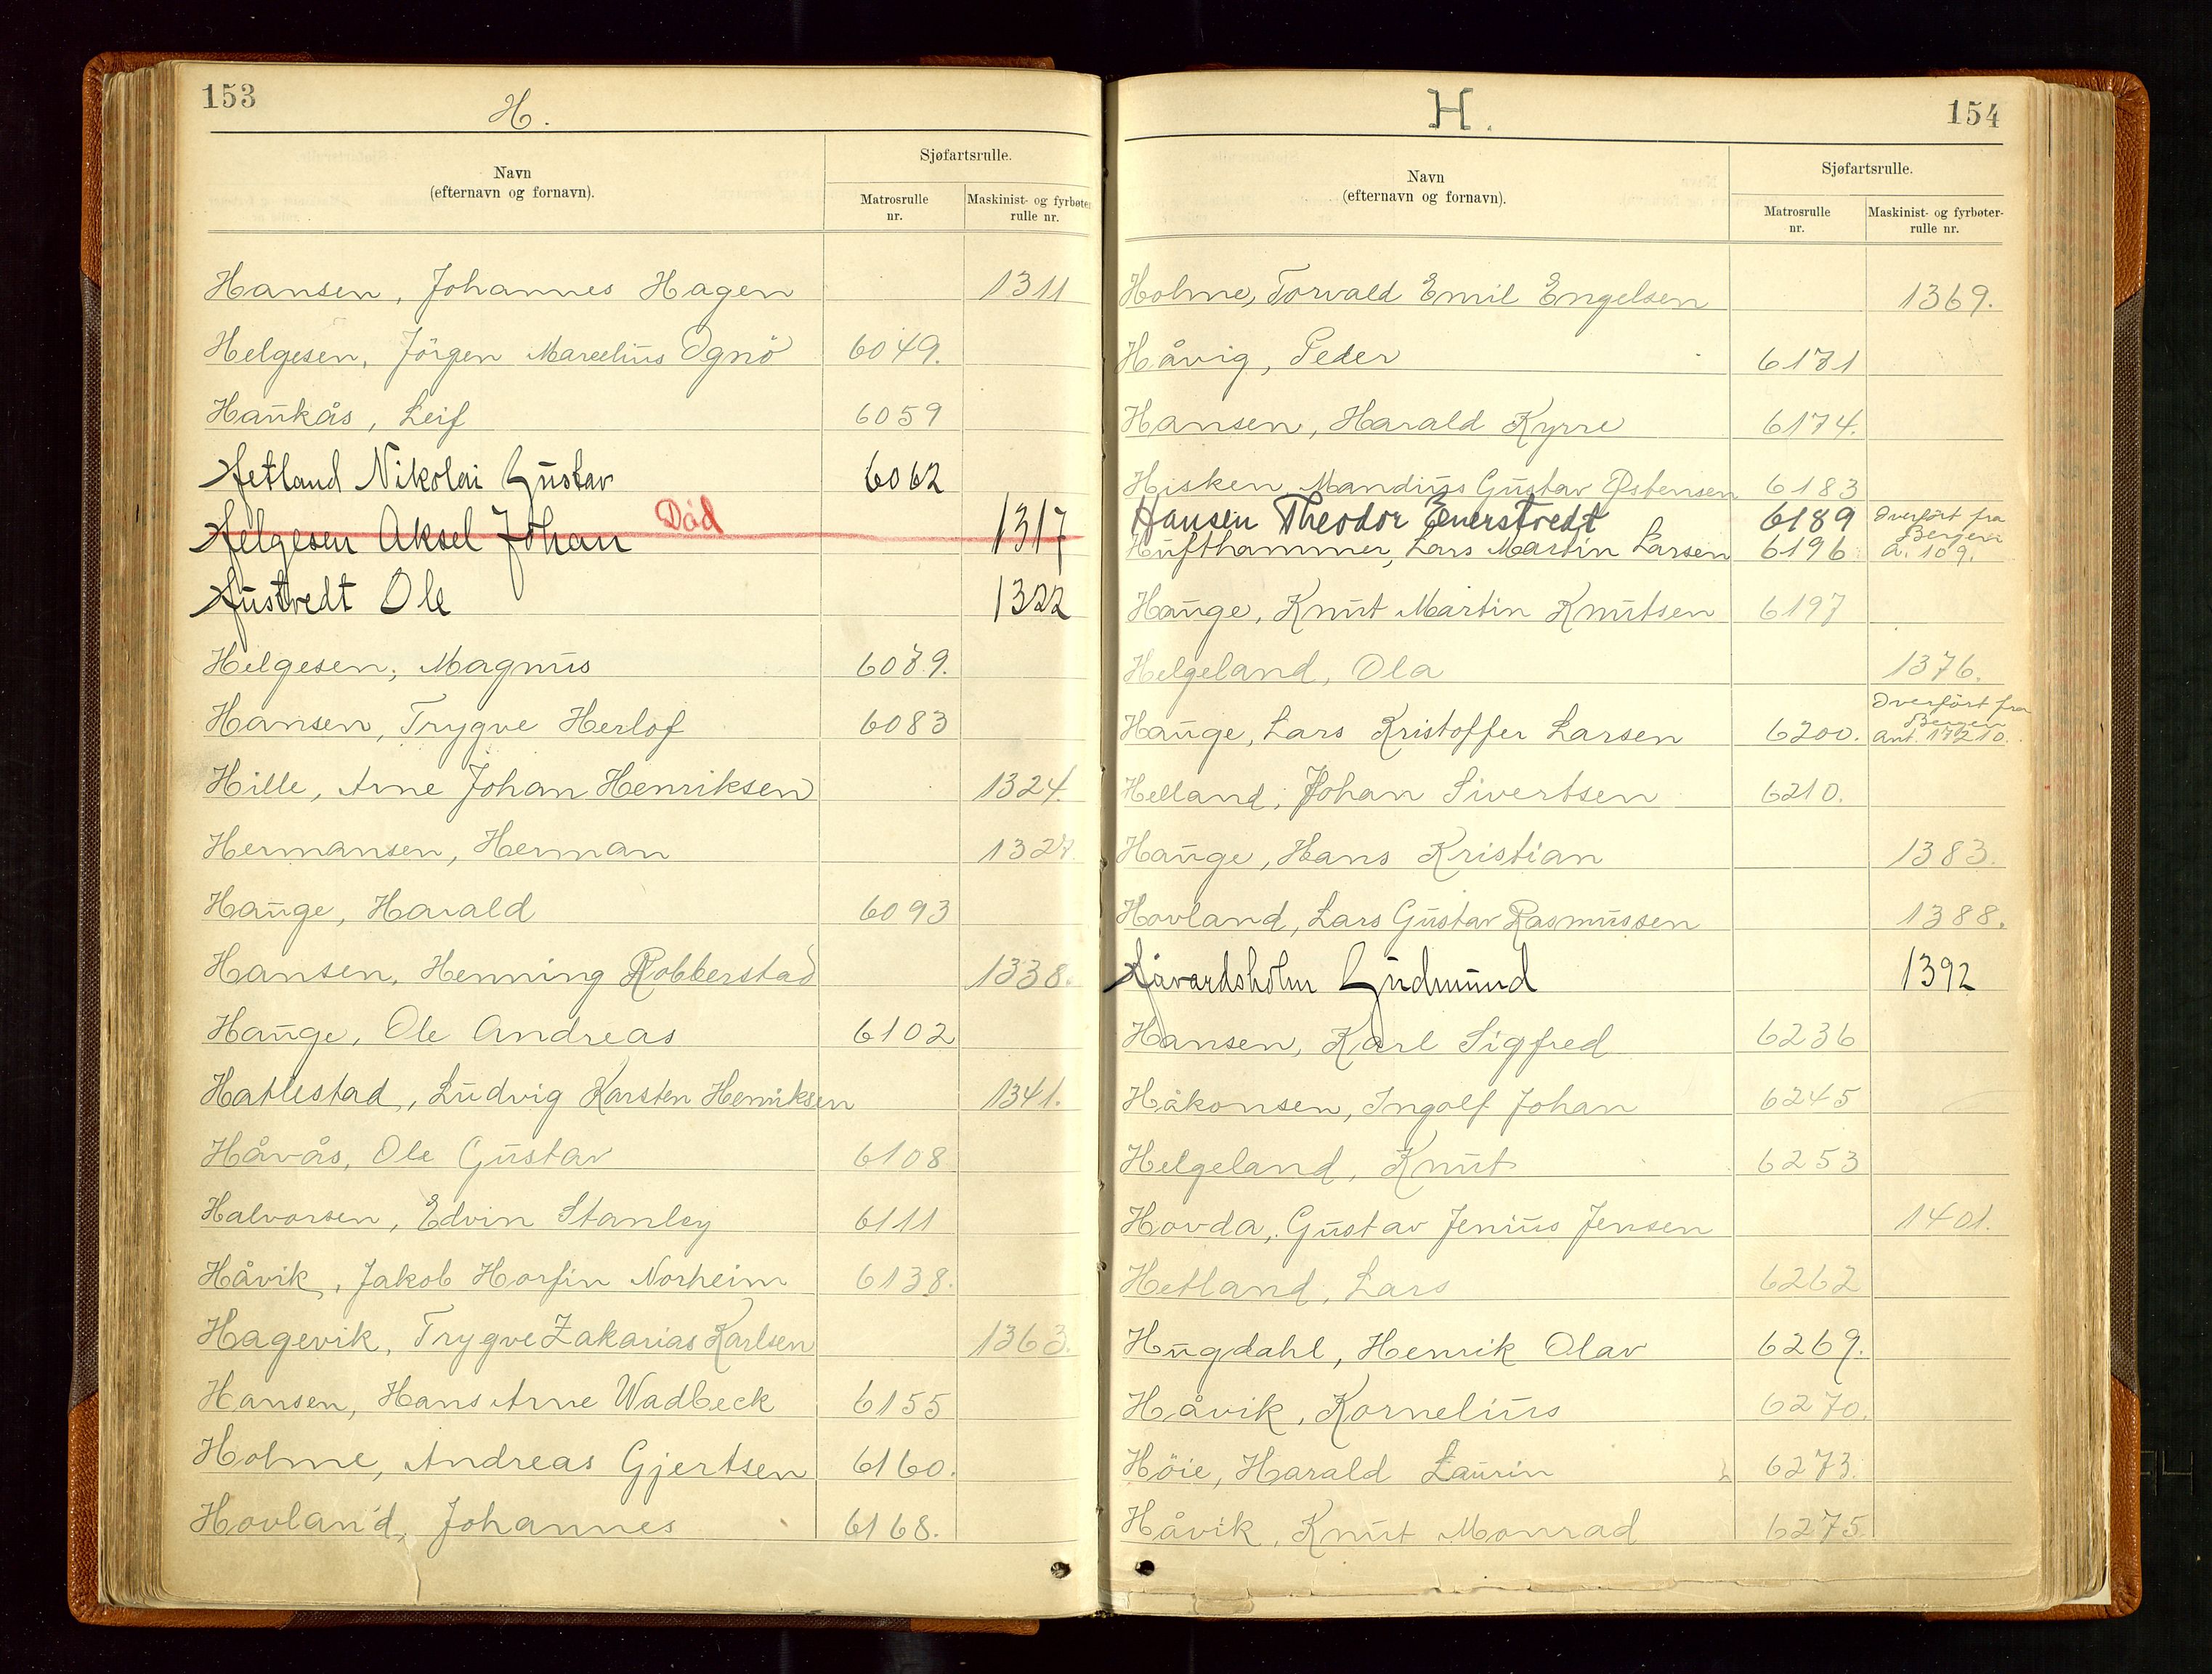 153
H.
Navn
(efternavn og fornavn).
Sjøfartsrulle.
Matrosrulle
nr.
Maskinist- og fyrbøter
rulle nr.
Hansen, Johannes Hagen 1311
Helgesen, Jörgen Marcelius Ognö 6049.
Haukås, Leif 6059
Hetland Nikolai Gustav 6062
Helgesen Aksel Johan Död 1317
Hustvedt Ole 1322
Helgesen, Magnus 6079.
Hansen, Trygve Herlof 6083
Hille, Arne Johan Henriksen 1324.
Hermansen, Herman 1327
Hauge, Harald 6093
Hansen, Henning Robberstad 1338.
Hauge, Ole Andreas 6102
Hatlestad, Ludvig Karsten Henriksen 1341.
Håvås, Ole Gustav 6108
Halvorsen, Edvin Stanley 6111
Håvik, Jakob Horfin Norheim 6138.
Hagevik, Trygve Zakarias Karlsen 1363.
Hansen, Hans Arne Wadbeck 6155
Holme, Andreas Gjertsen 6160.
Hovland, Johannes 6168.
H. 154
Navn
(efternavn og fornavn).
Sjøfartsrulle.
Matrosrulle
nr.
Maskinist- og fyrbøter-
rulle nr.
Holme, Torvald Emil Engelsen 1369.
Håvig, Peder 6171
Hansen, Harald Kyrre 6174.
Hisken Mandius Gustav Østensen 6183
Hansen Theodor Enerstvedt 6189 Overfört fra
Bergen
Hufthammer, Lars Martin Larsen 6196 a. 109.
Hauge, Knut Martin Knutsen 6197
Helgeland, Ola 1376.
Overfört fra
Bergen
Hauge, Lars Kristoffer Larsen 6200. ant. 17210.
Helland, Johan Sivertsen 6210.
Hauge, Hans Kristian 1383.
Hovland, Lars Gustav Rasmussen 1388.
Håvardsholm Gudmund 1392
Hansen, Karl Sigfred 6236
Håkonsen, Ingolf Johan 6245
Helgeland, Knut 6253
Hovda, Gustav Jenius Jensen 1401.
Hetland, Lars 6262
Hugdahl, Henrik Olav 6269.
Håvik, Kornelius 6270.
Höie, Harald Laurin 6273.
Håvik, Knut Monrad 6275.